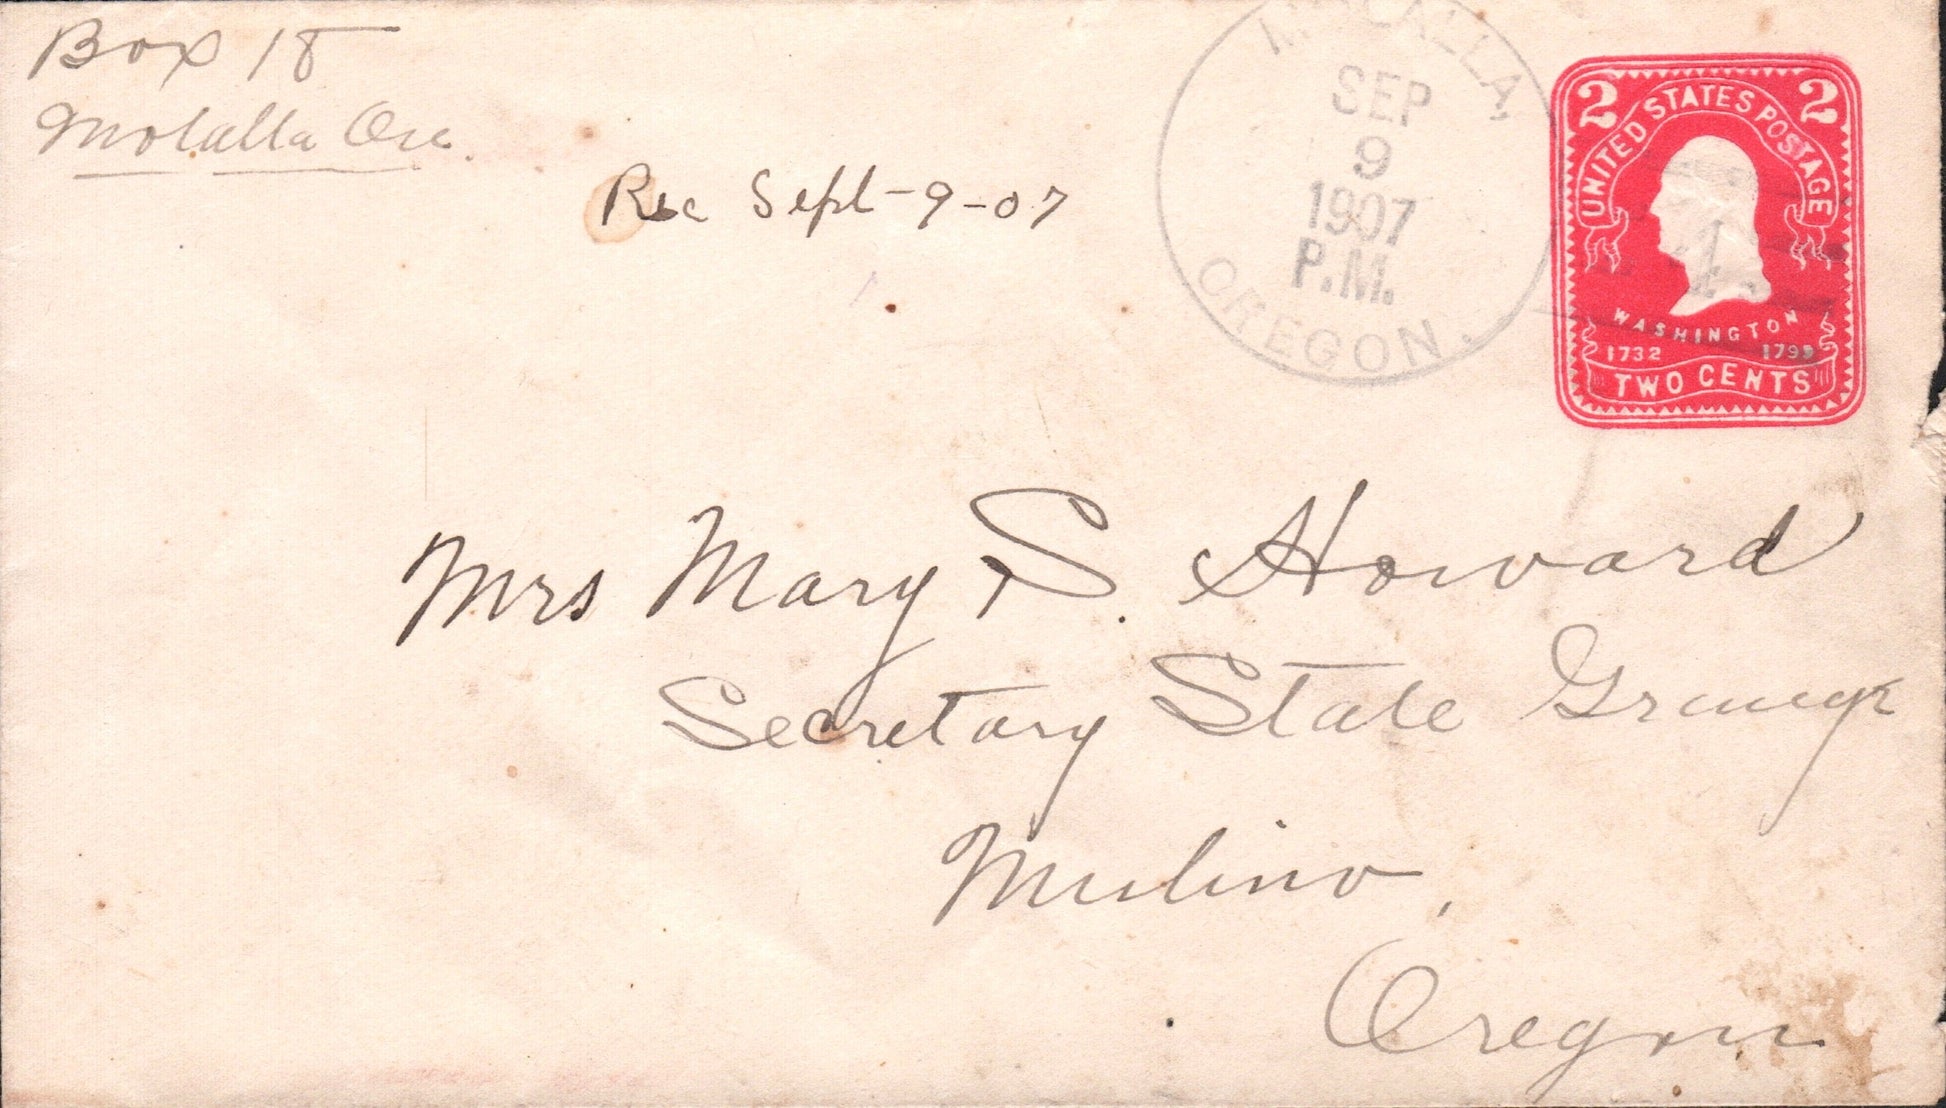 Box 18
Molalla Ore.
Rec Sept-9-07
MOLALLA,
SEP
9
1907
P.M.
OREGON.
2 2
UNITED STATES POSTAGE
WASHINGTON
1732 1799
TWO CENTS
1
Mrs Mary S. Howard
Secretary State Grange
Mulino,
Oregon